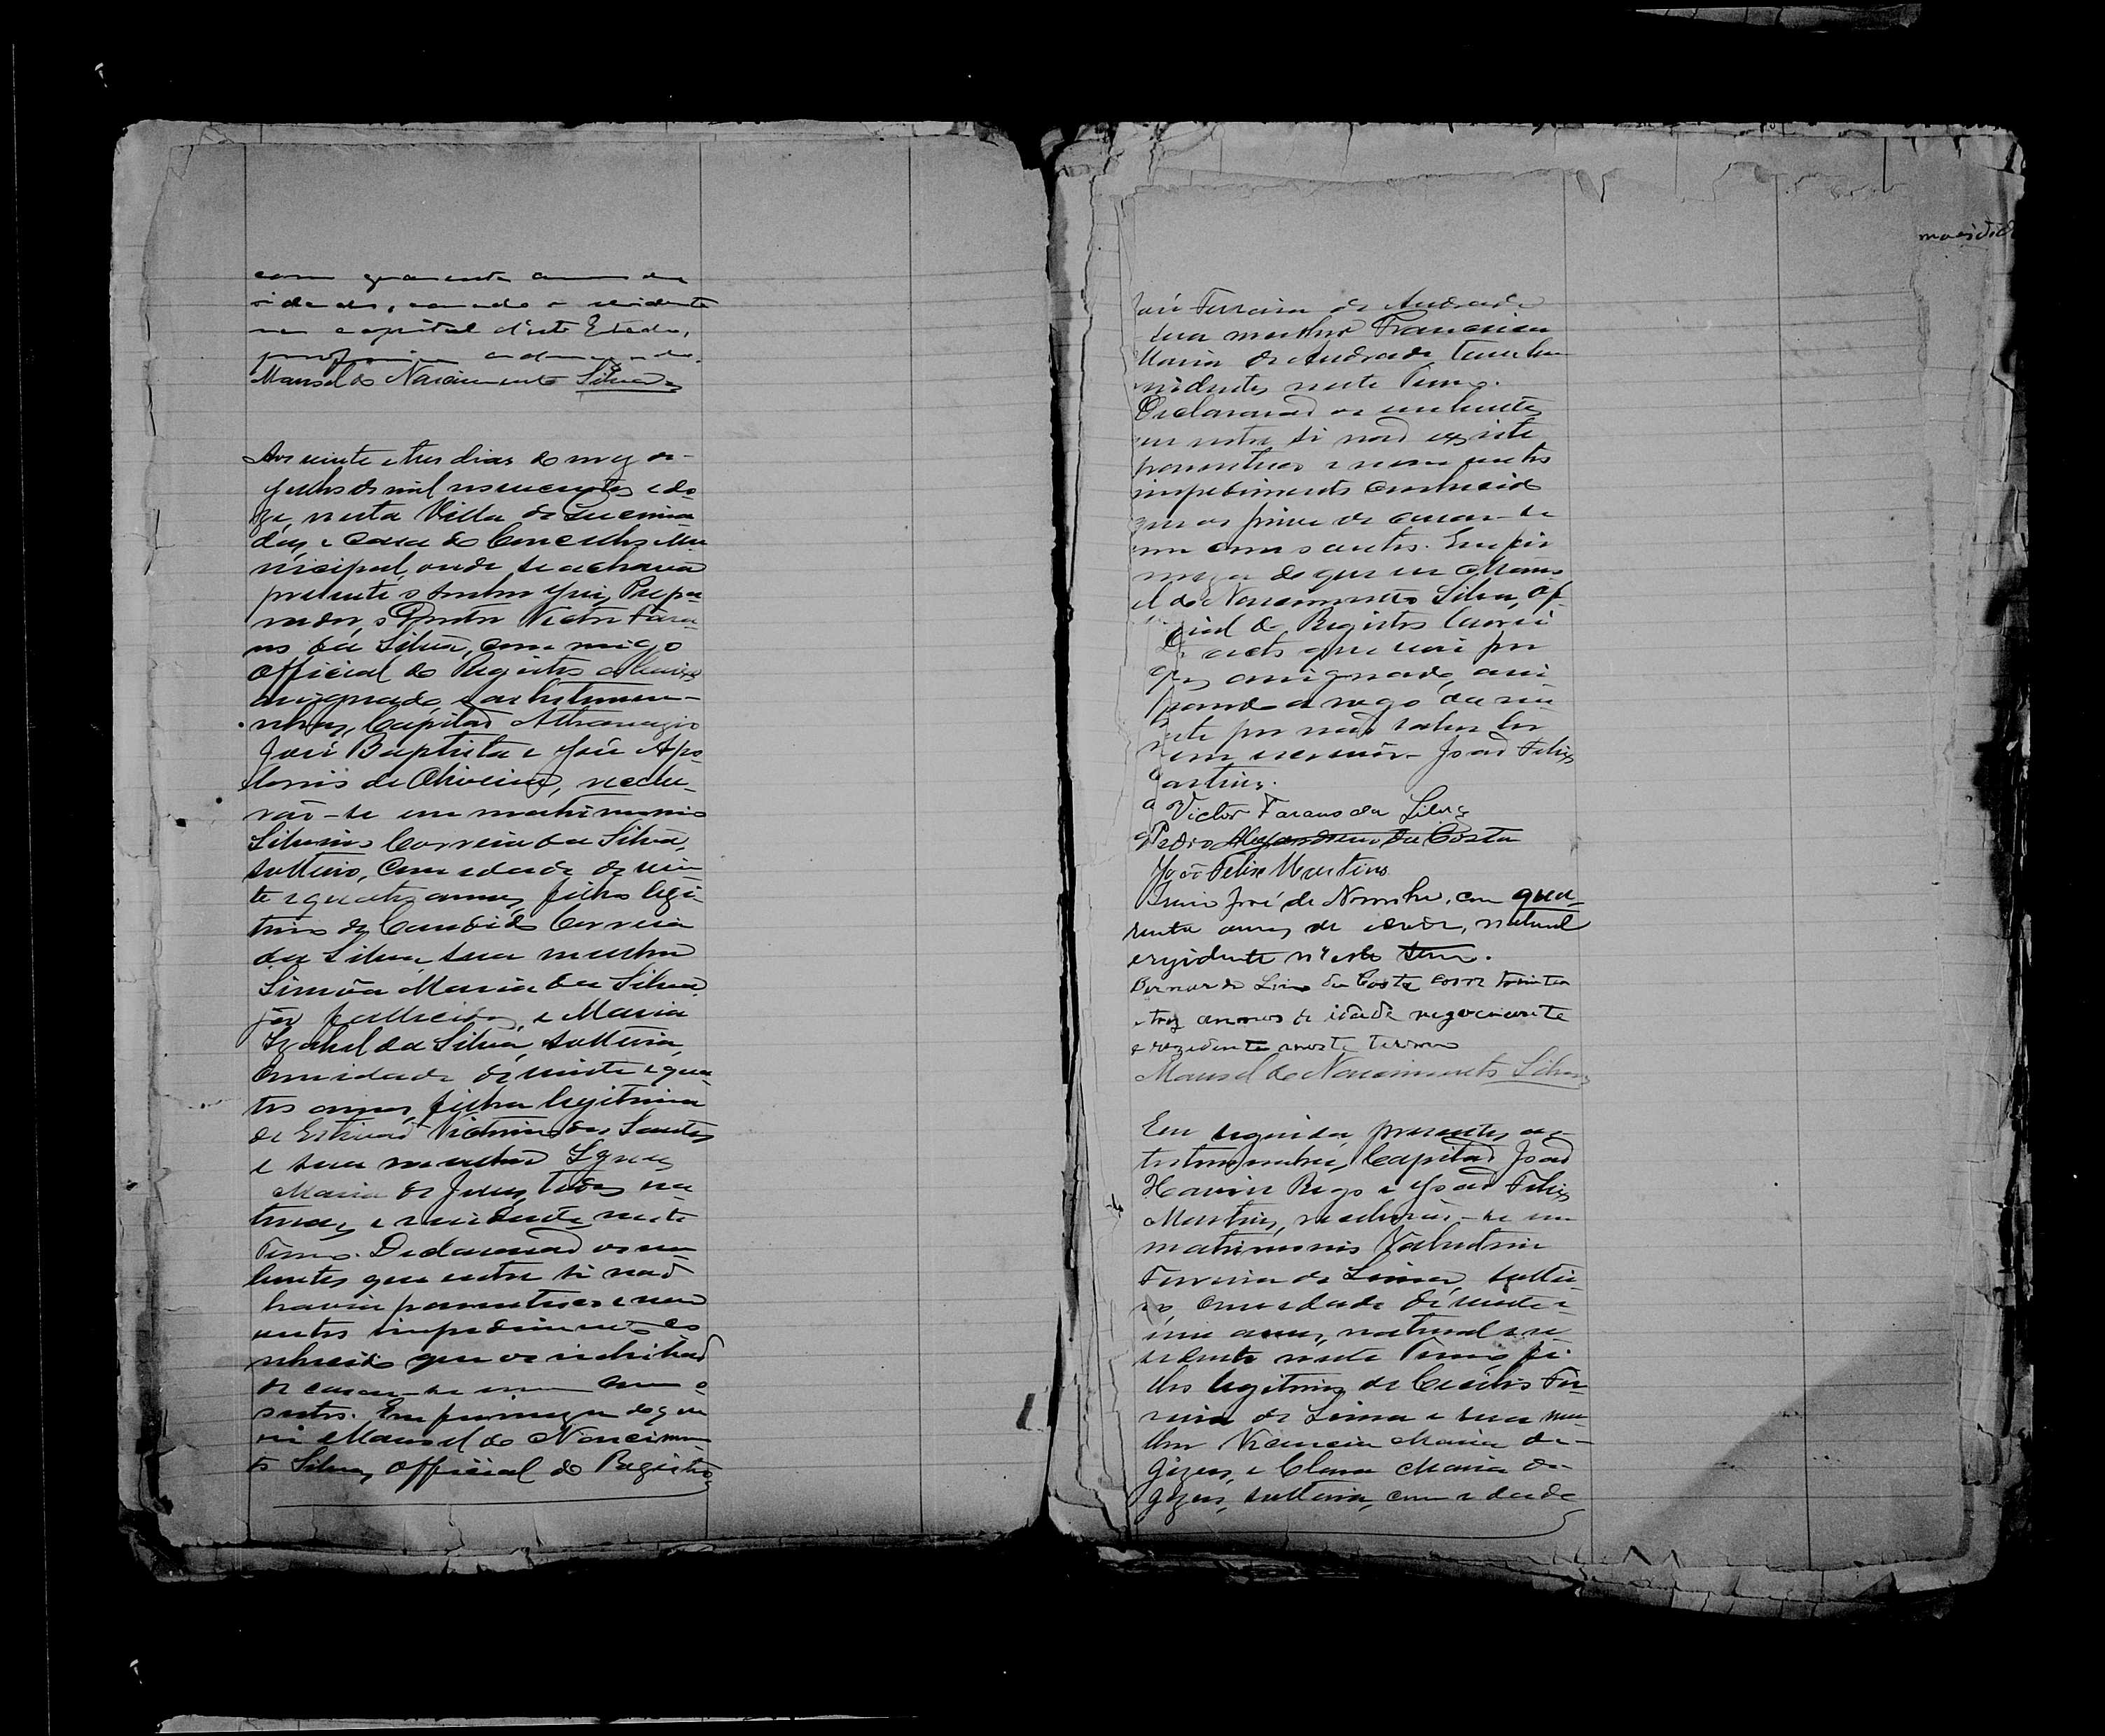 com quarenta annos de
idade, casado e residente
na capital d'este Estado,
profissão
Manoel do Nascimento Silva
Aos vinte e tres dias do mez de
Julho de mil novecentos e do
ze, nesta Villa de
e Casa do Concelho Mu
nicipal, onde se achava
presente o senhor Juiz Prepa
rador, o Doutor Victor Fara
da Silva, commigo
Official do Registro abaixo
assignado, e as testemu-
nhas, Capitão Athanazio
José Baptista e José Apo
lonio de Oliveira, recebe-
rão-se em matrimonio
Silvino Correia da Silva,
solteiro, com edade de vin
te e quatro annos, filho legi-
timo de Candido Correia
da Silva e sua mulher
Simôa Maria da Silva,
já fallecidos, e Maria
Izabel da Silva, solteira,
com idade de vinte e qua
tro annos, filha legitima
de Estevão Victorino dos Santos
e sua mulher Ignez
Maria de Jesus, todos na
turaes e residentes neste
Termo. Declararão os nu
bentes que entre si não
havia parentesco e nem
outro impedimento co
nhecido que os inhibão
de casar-se um com o
outro. Em firmeza do que
eu Manoel do Nascimen
to Silva, Official do Registro
José Ferreira de Andrade
sua mulher Francisca
Maria de Andrade, tambem
residentes neste Termo.
Declararão os nubentes
que entre si não existe
parentesco e nem outro
impedimento conhecido
que os prive de casar-se
um com o outro. Em fir
meza do que eu Mano
el do Nascimento Silva, Of
ficial do Registro lavrei
acto que vai por
assignado, assi
gnando a rogo da nu
bente por não saber ler
nem escrever João Felix
Martins.
Victor Farans da Silva
Pedro Alexandrino da Costa
João Felix Martins
José de com qua-
renta annos de idade, natural
e rezidente n'este Termo.
Bernardo Lino da Costa com trinta
e trez annos de idade negociante
e rezidente neste termo
Manoel do Nascimento Silva
Em seguida, presentes as
testemunhas, Capitão João
Xavier Rego e João Felix
Martins, receberão-se em
matrimonio
Ferreira de Lima, soltei
ro com edade de vinte e
um annos, natural e re
sidente neste Termo, fi
lho legitimo de Cecilio Fer
reira de Lima e sua mu
lher Vicencia Maria de
Jezus, e Clara Maria de
Jezus, solteira, com edade